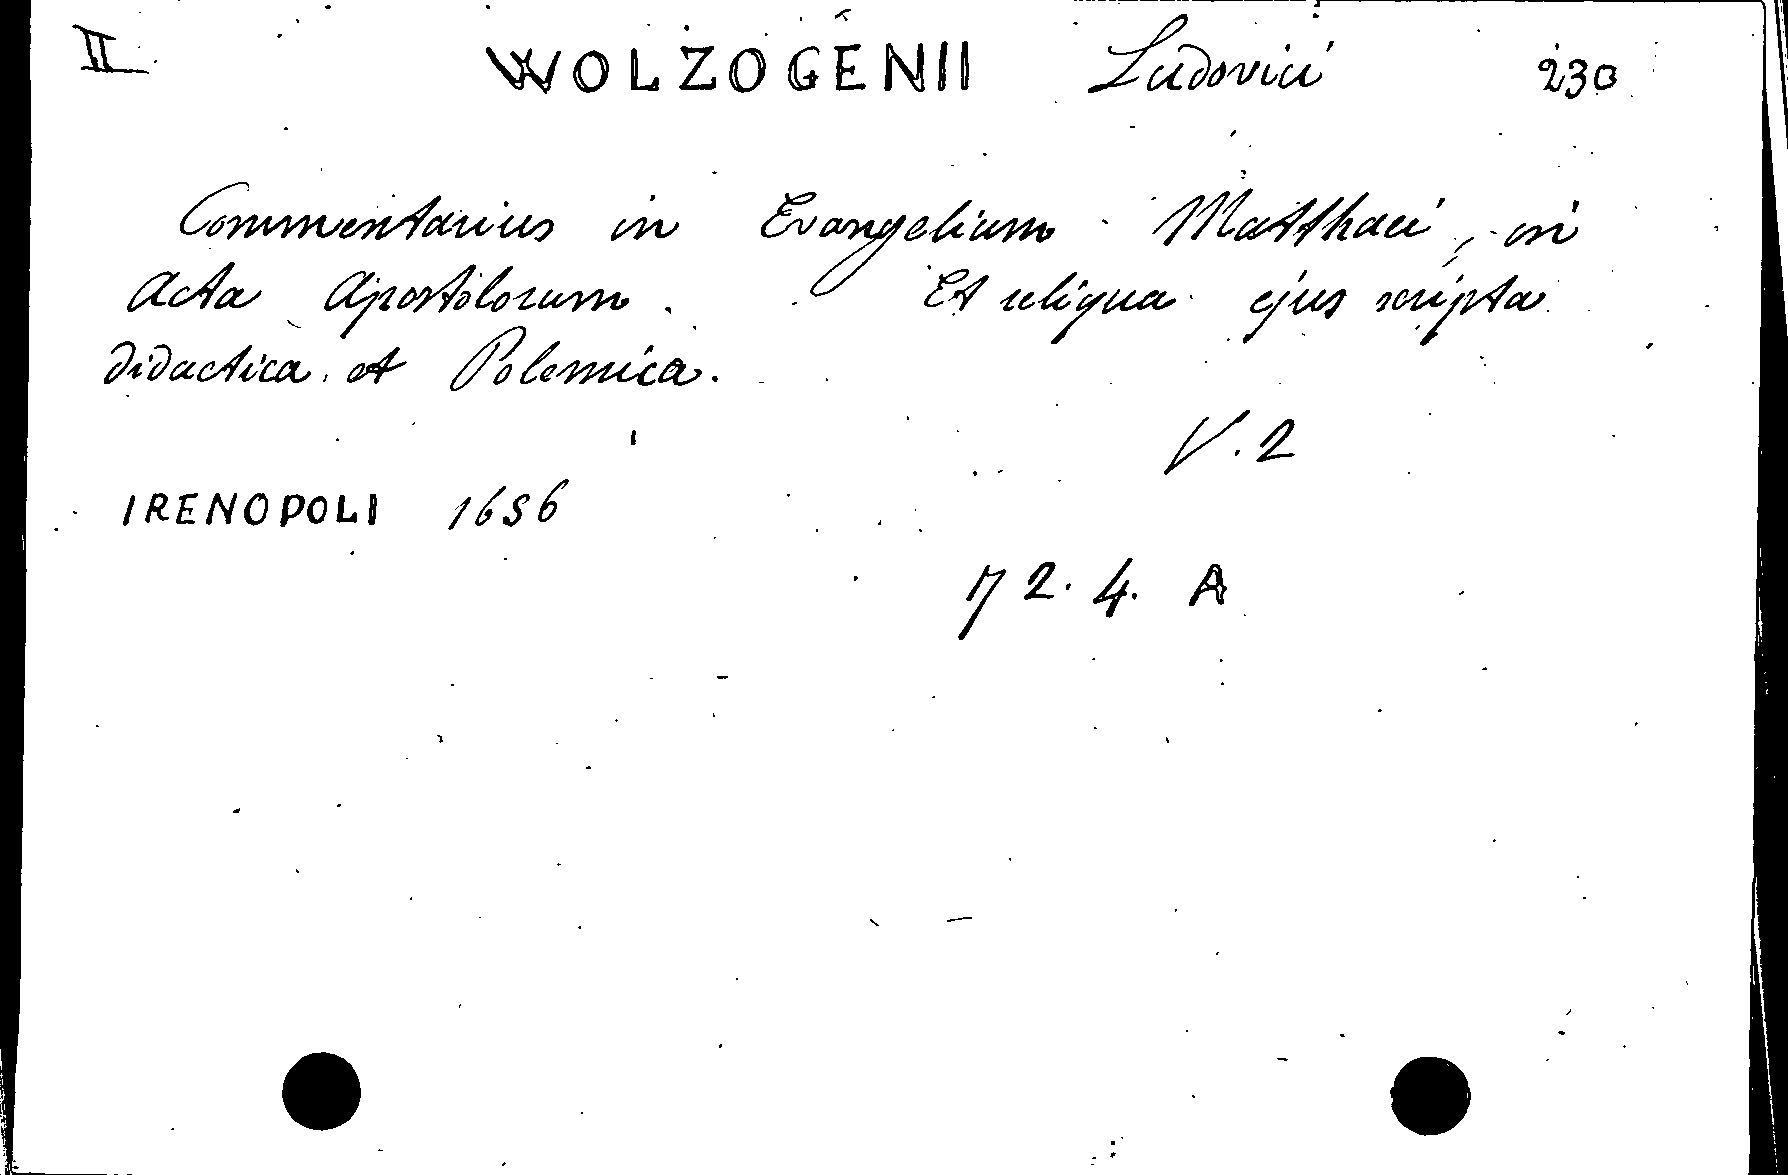 II WOLZOGENII Ludovici 230
Commentarius in Evangelium Matthaei, in
Acta Apostolorum. Et reliqua ejus scripta
didactica et Polemica.
V.2
IRENOPOLI 1656
72.4. A